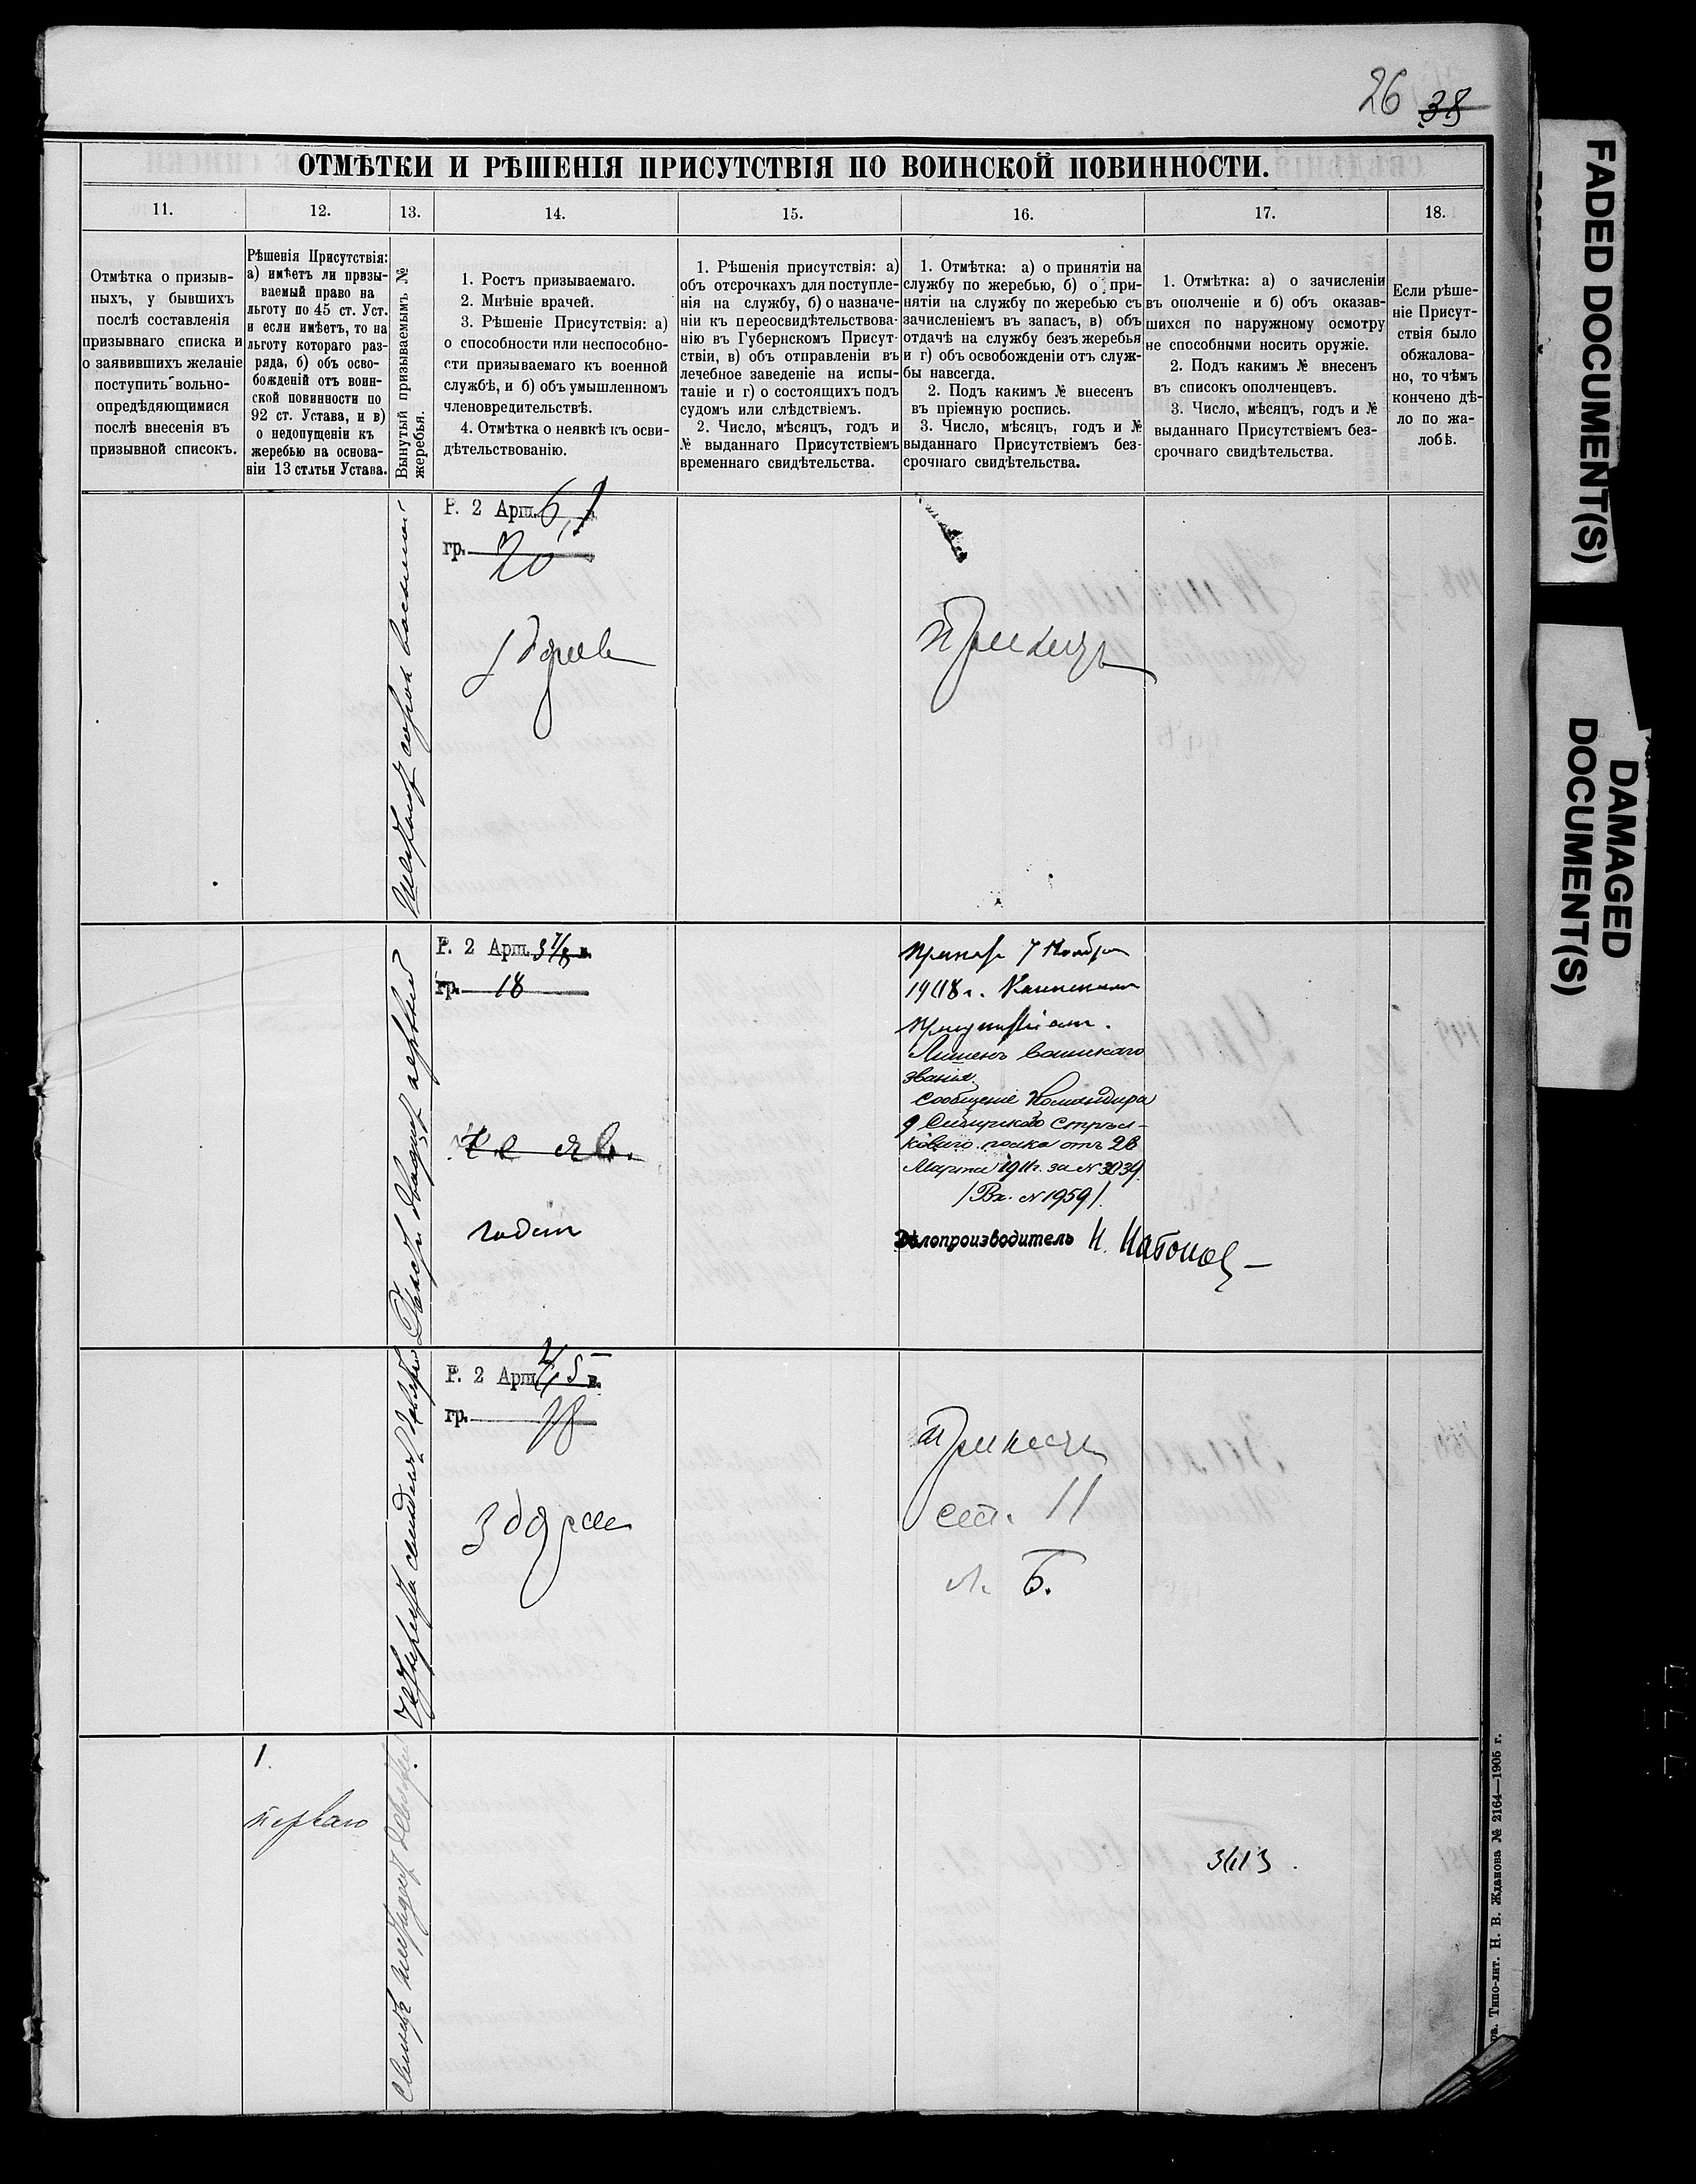 26 38
ОТМѢТКИ И РѢШЕНІЯ ПРИСУТСТВІЯ ПО ВОИНСКОЙ ПОВИННОСТИ.
11.
12.
13.
14.
15.
16.
17.
18.
Отмѣтка о призыв-
ныхъ, у бывшихъ
послѣ составленія
призывнаго списка и
о заявившихъ желаніе
поступить вольно-
опредѣляющимися
послѣ внесенія въ
призывной списокъ.
Рѣшенія Присутствія:
а) имѣетъ ли призы-
ваемый право на
льготу по 45 ст. Уст.
и если имѣетъ, то на
льготу котораго раз-
ряда, б) объ осво-
божденій отъ воин-
ской повинности по
92 ст. Устава, и в)
о недопущеніи къ
жеребью на основа-
ніи 13 статьи Устава.
Вынутый призываемымъ №
жеребья.
1. Ростъ призываемаго.
2. Мнѣніе врачей.
3. Рѣшеніе Присутствія: а)
о способности или неспособно-
сти призываемаго къ военной
службѣ, и б) объ умышленномъ
членовредительствѣ.
4. Отмѣтка о неявкѣ къ осви-
дѣтельствованію.
1. Рѣшенія присутствія: а)
объ отсрочкахъ для поступле-
нія на службу, б) о назначе-
ніи къ переосвидѣтельствова-
нію въ Губернскомъ Присут-
ствіи, в) объ отправленіи въ
лечебное заведеніе на испы-
таніе и г) о состоящихъ подъ
судомъ или слѣдствіемъ.
2. Число, мѣсяцъ, годъ и
№ выданнаго Присутствіемъ
временнаго свидѣтельства.
1. Отмѣтка: а) о принятіи на
службу по жеребью, б) о при-
нятіи на службу по жеребью съ
зачисленіемъ въ запасъ, в) объ
отдачѣ на службу безъ жеребья
и г) объ освобожденіи отъ служ-
бы навсегда.
2. Подъ какимъ № внесенъ
въ пріемную роспись.
3. Число, мѣсяцъ, годъ и №
выданнаго Присутствіемъ без-
срочнаго свидѣтельства.
1. Отмѣтка: а) о зачисленіи
въ ополченіе и б) объ оказав-
шихся по наружному осмотру
не способными носить оружіе.
2. Подъ какимъ № внесенъ
въ списокъ ополченцевъ.
3. Число, мѣсяцъ, годъ и №
выданнаго Присутствіемъ без-
срочнаго свидѣтельства.
Если рѣше-
ніе Присут-
ствія было
обжалова-
но, то чѣмъ
кончено дѣ-
ло по жа-
лобѣ.
сорок восьмой
Р. 2 Арш. 6,1 в.
гр. 20
Здоров
Принят
Двести двадцать первый
Р. 2 Арш. 3 7/8 в.
гр. 18
Не яв.
годен
Принят 7 Ноября
1908 г. Каинским
присутствіем.
Лишенъ воинскаго
званія.
Сообщеніе Командира
9 Сибирскаго Стрѣл-
коваго полка отъ 28
Марта 1911г. за № 3039
/Вх. № 1959/.
Дѣлопроизводитель Н.
Четыреста семьдесят
Р. 2 Арш. 5 в.
гр. 18
Здоров
Принят
ст. 11
л. Б.
1.
перваго
Семьсот шестьдесят
3613.
ра. Типо-лит. Н. В. Жданова № 2164—1905 г.
FADED DOCUMENT(S)
DAMAGED
DOCUMENT(S)